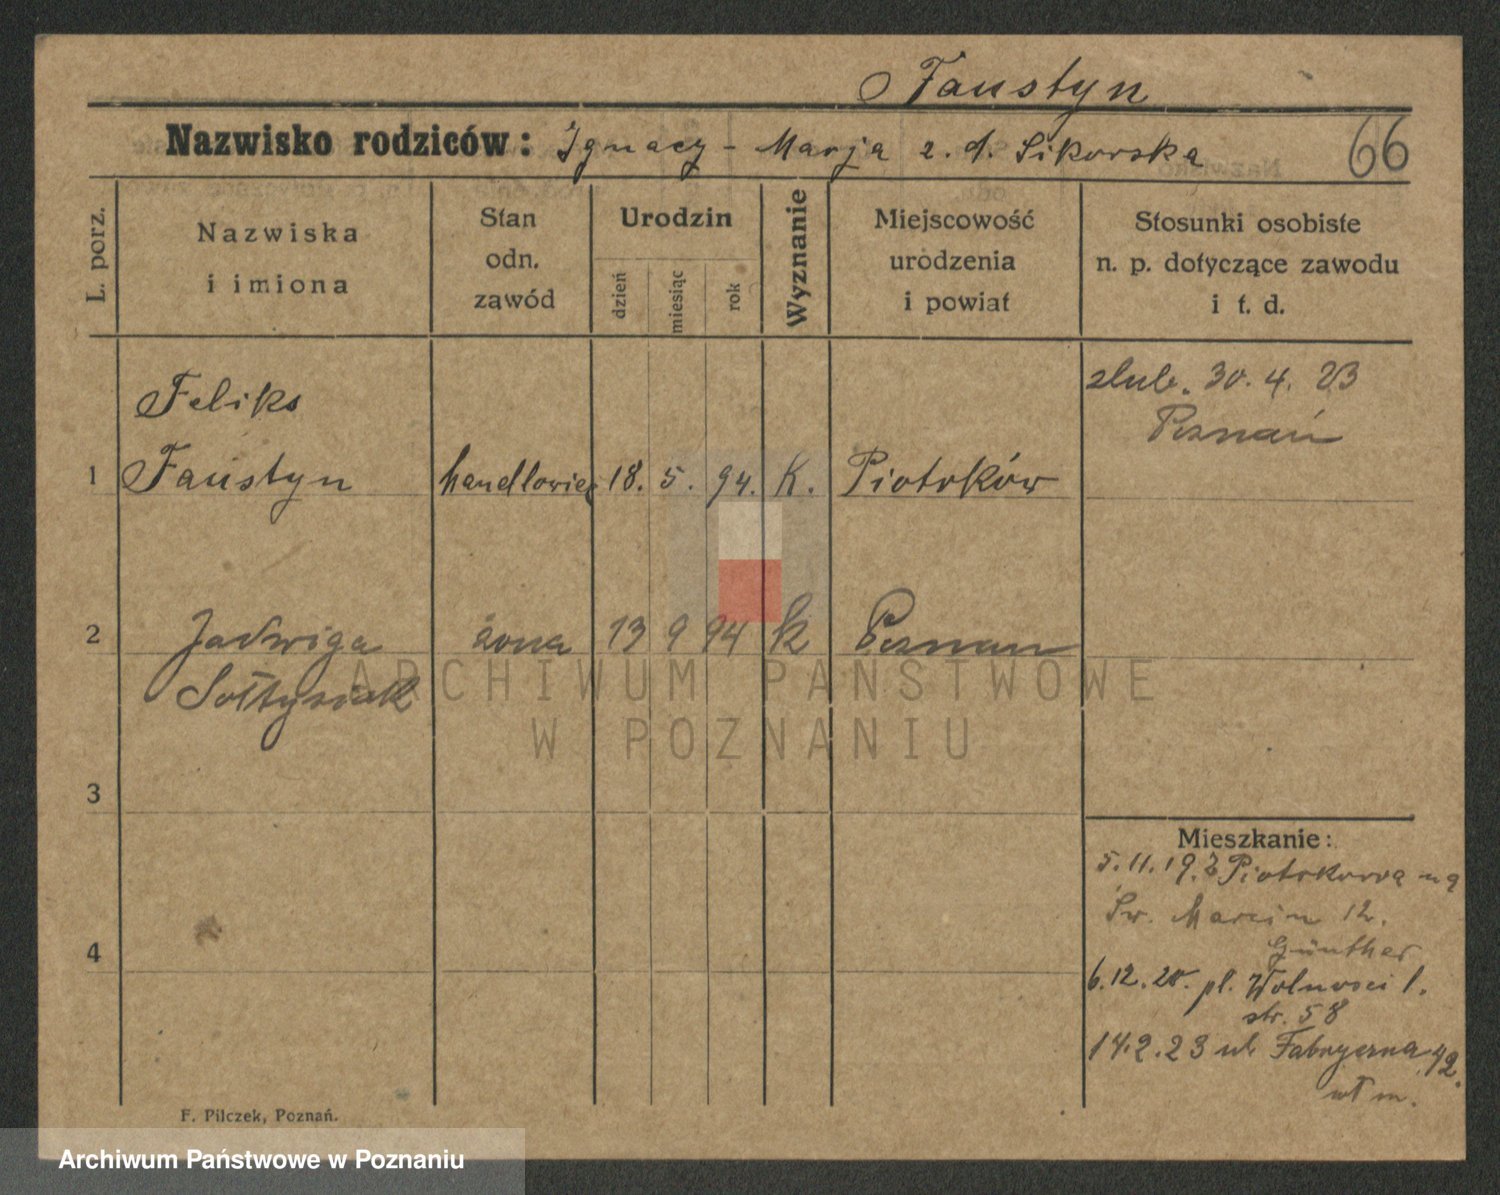 Faustyn
Nazwisko rodziców: Ignacy - Marja z. d. Sikorska
66
L. porz.
Nazwiska
i imiona
Stan
odn.
zawód
Urodzin
dzień
miesiąc
rok
Wyznanie
Miejscowość
urodzenia
i powiat
Stosunki osobiste
n. p. dotyczące zawodu
i t. d.
ślub. 30. 4. 23
Poznań
Feliks
1 Faustyn handlowiec 18. 5. 94. K. Piotrków
2 Jadwiga żona 13 9 94 k Poznań
Sołtysiak
3
4
Mieszkanie:
5.11.19. z Piotrkowa na
Św. Marcin 12.
Günther
6.12.20. pl. Wolnosci 1.
str. 58
14.2.23 ul Fabryczna 42.
wł m.
F. Pilczek, Poznań.
ARCHIWUM PAŃSTWOWE
W POZNANIU
Archiwum Państwowe w Poznaniu